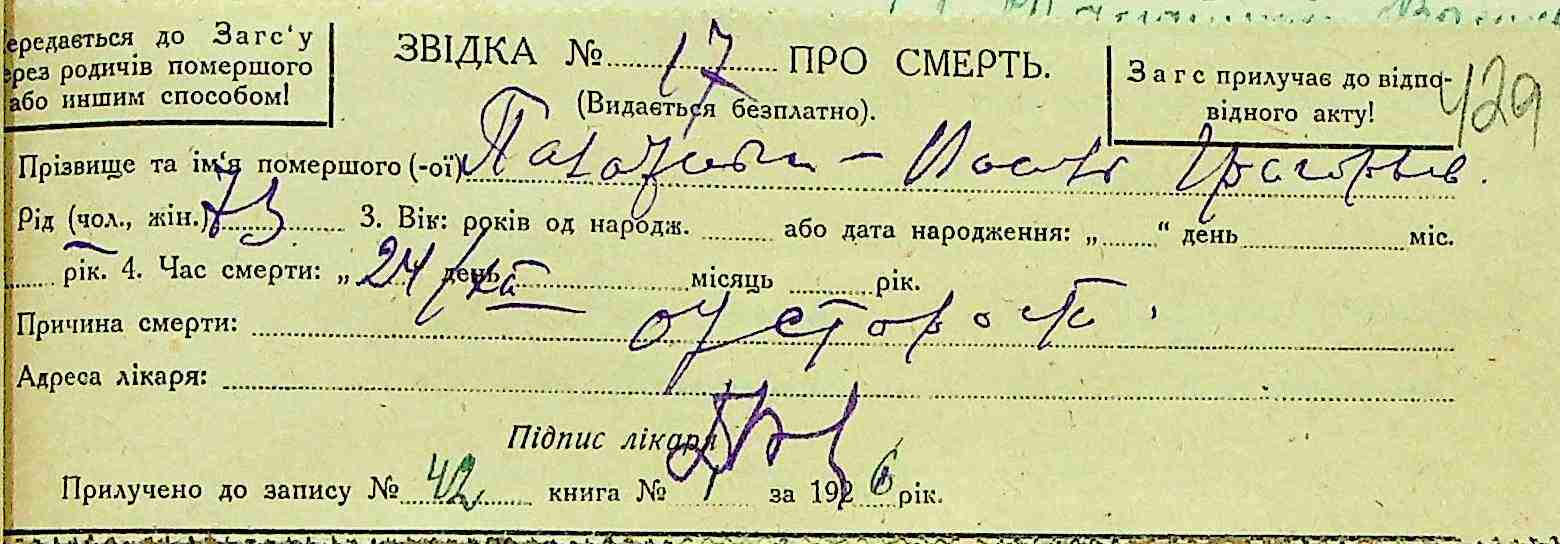 ередається до Загс'у
ерез родичів помершого
або иншим способом!
ЗВІДКА № 17 ПРО СМЕРТЬ.
(Видається безплатно).
Загс прилучає до відпо-
відного акту!
429
Прізвище та ім'я помершого (-ої)
Рід (чол., жін.) 73 3. Вік: років од народж. або дата народження: „ “ день міс.
рік. 4. Час смерти: „ 24/XII день місяць рік.
Причина смерти: от старости
Адреса лікаря:
Підпис лікаря
Прилучено до запису № 42 книга № 1 за 1926 рік.